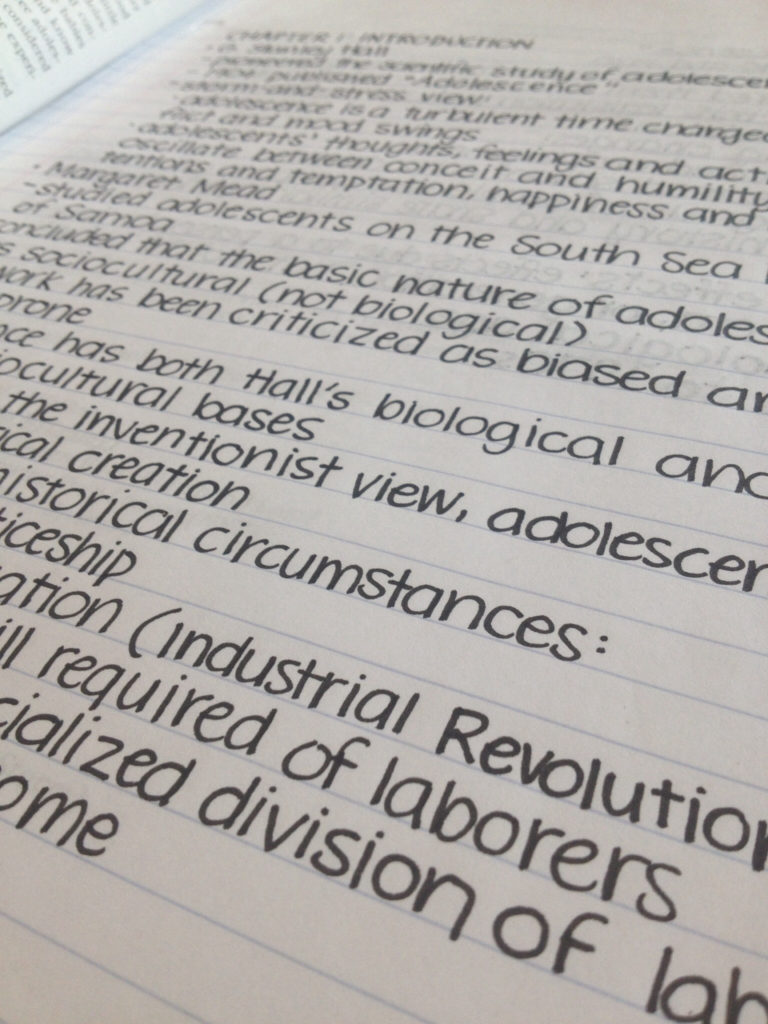 CHAPTER 1: INTRODUCTION
· G. Stanley Hall
-pioneered the scientific study of adolescen
- 1904: published "Adolescence"
-storm-and-stress view:
adolescence is a turbulent time charged
flict and mood swings
·adolescents' thoughts, feelings and acti
oscillate between conceit and humility
tentions and temptation, happiness and
· Margaret Mead
-studied adolescents on the South Sea I
of Samoa
oncluded that the basic nature of adoles
s sociocultural (not biological)
work has been criticized as biased an
prone
nce has both Hall's biological and
iocultural bases
the inventionist view, adolescen
ical creation
historical circumstances:
ticeship
ation (Industrial Revolution
ill required of laborers
cialized division of lab
ome